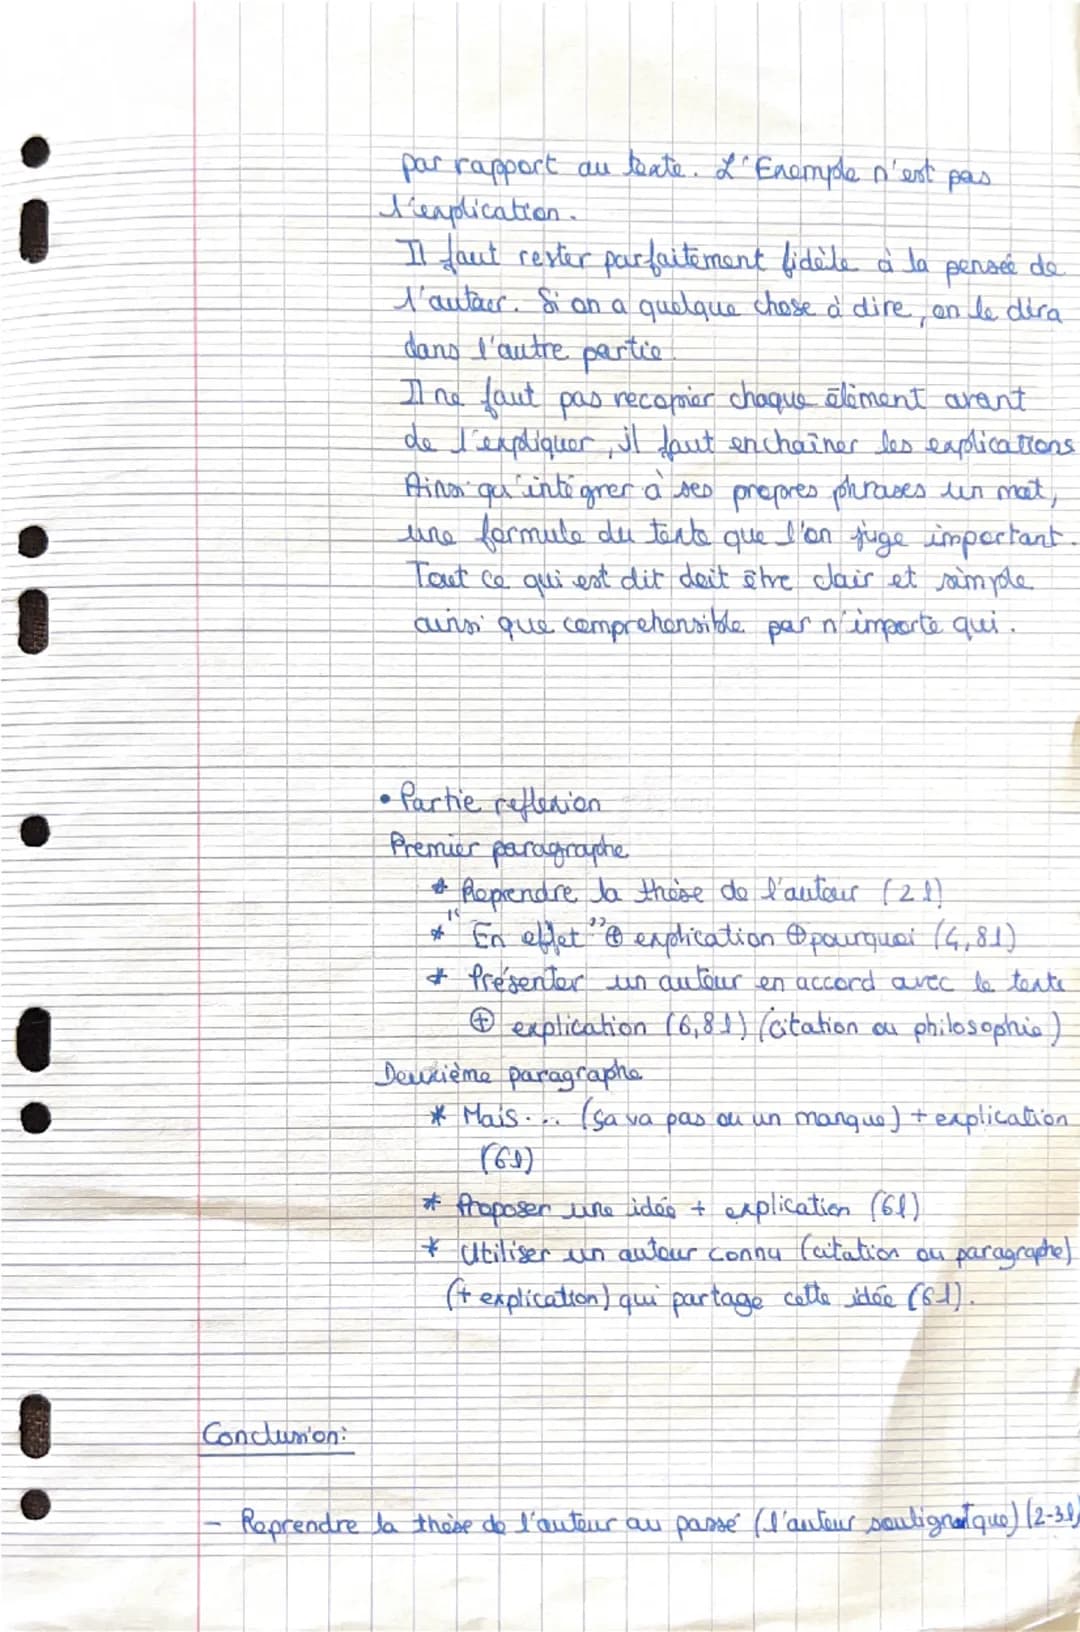 par rapport au texte. L'Exemple n'est pas
l'explication.
Il faut rester parfaitement fidèle à la pensée de
l'auteur. Si on a quelque chose à dire, on le dira
dans l'autre partie.
Il ne faut pas recopier chaque élément avant
de l'expliquer, il faut enchaîner les explications
Ainsi qu'intégrer à ses propres phrases un mot,
une formule du texte que l'on juge important.
Tout ce qui est dit doit être clair et simple
ainsi que comprehensible par n'importe qui.
• Partie reflexion
Premier paragraphe
* Reprendre la thèse de l'auteur (2l)
* "En effet" ⊕ explication ⊕ pourquoi (4,8l)
* Présenter un auteur en accord avec le texte
⊕ explication (6,8l) (citation ou philosophie)
Deuxième paragraphe
* Mais... (ça va pas ou un manque) + explication
(6l)
* Proposer une idée + explication (6l)
* Utiliser un auteur connu (citation ou paragraphe)
(+ explication) qui partage cette idée (6l).
Conclusion:
- Reprendre la thèse de l'auteur au passé (l'auteur soulignait que) (2-3l)